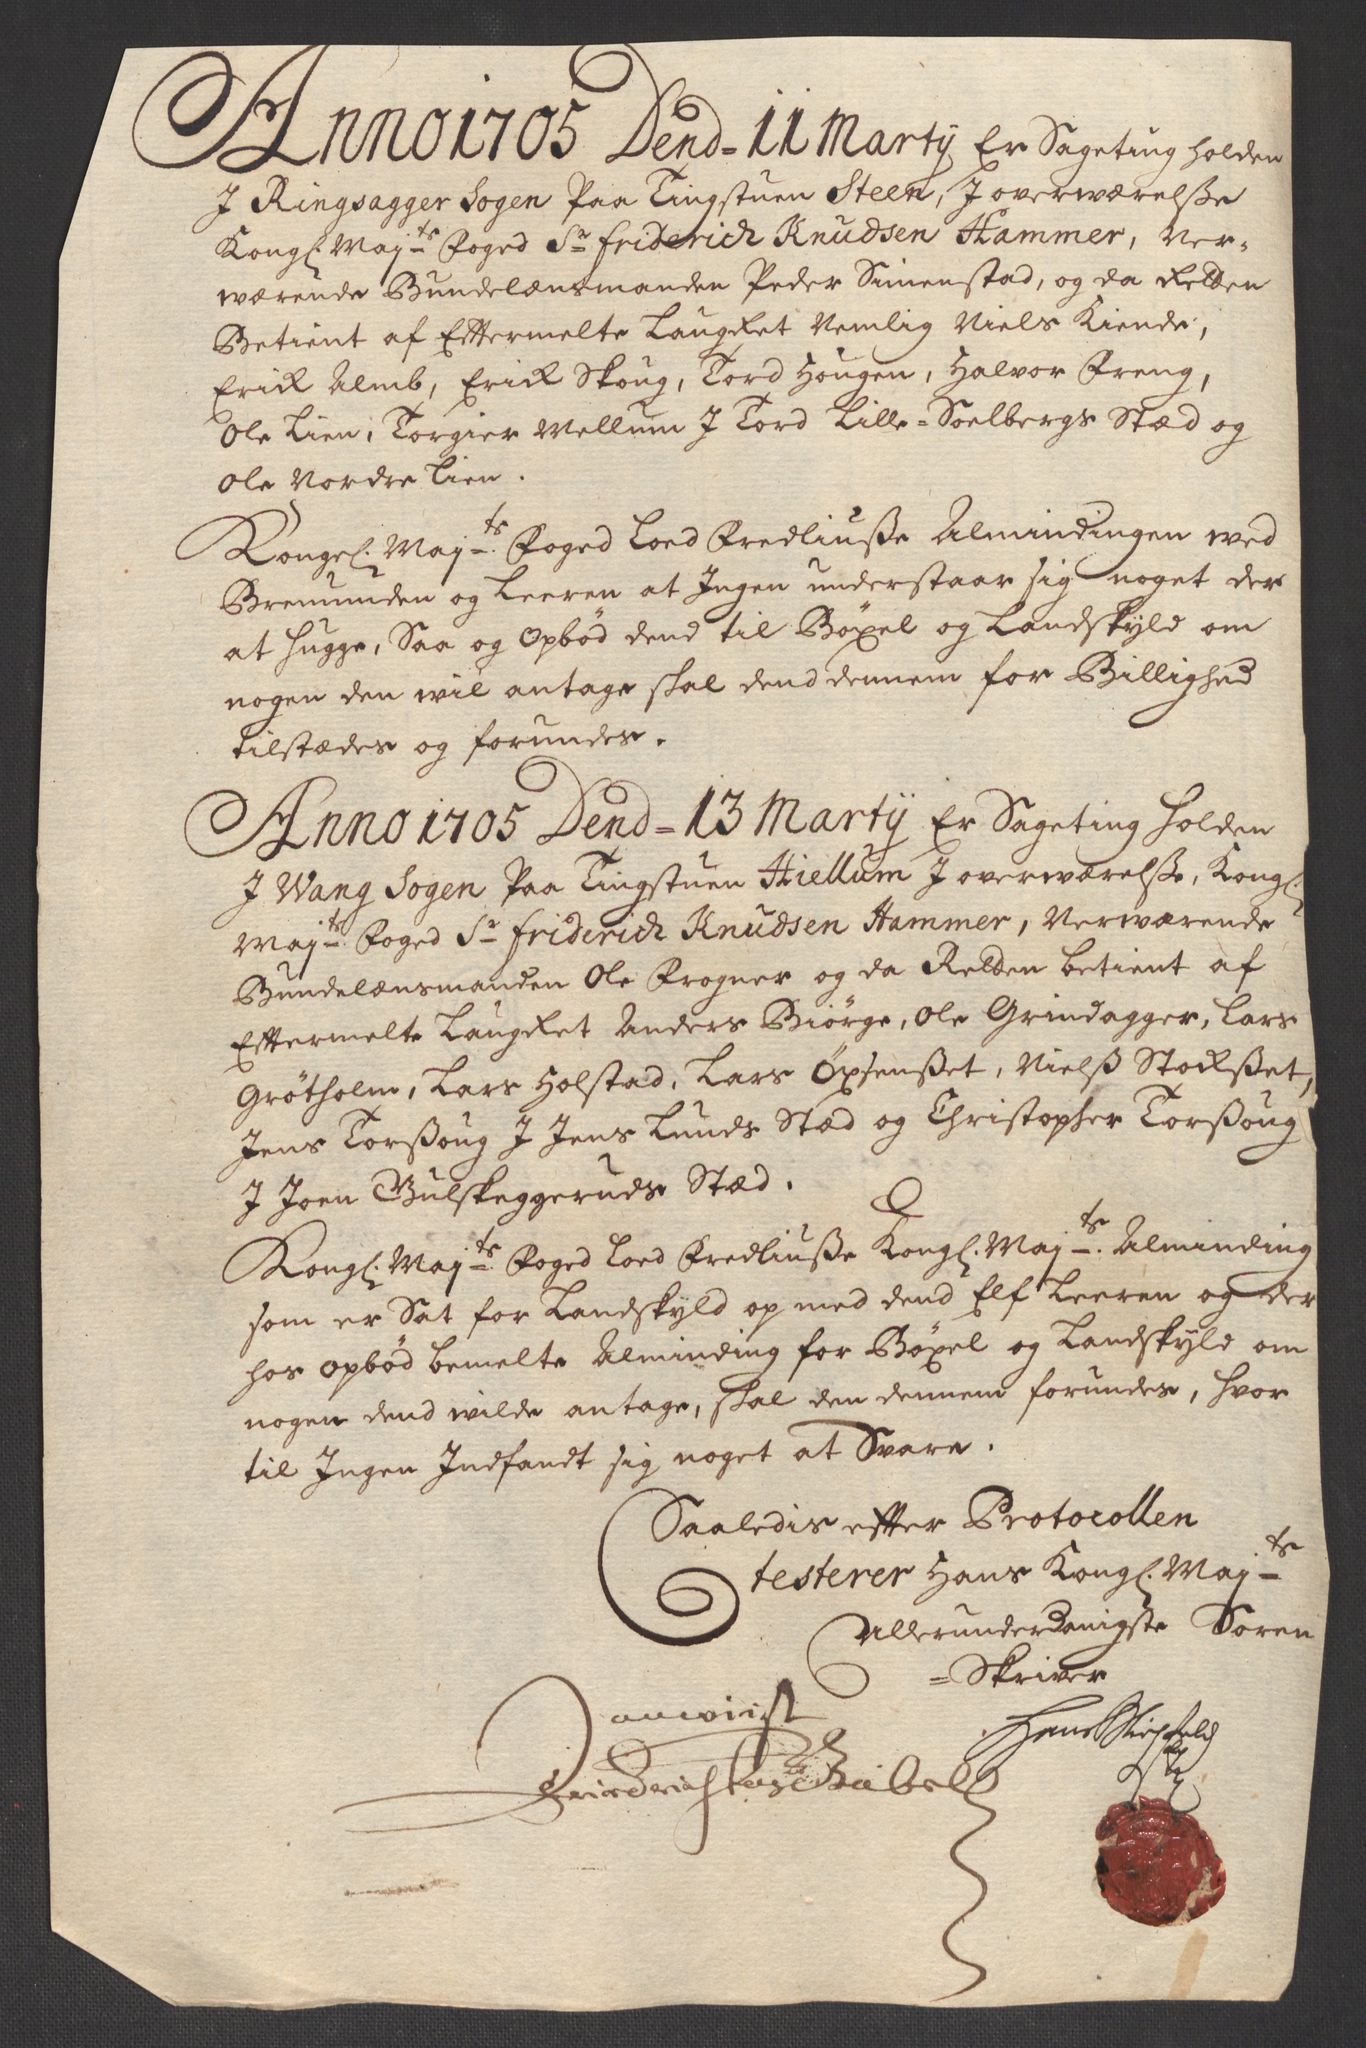 Anno 1705 Dend= 11 Martÿ Er Sageting holden
J Ringsagger Sogen Paa Tingstuen Steen, J overwærelsse
Kongl. Maj:ts Foged Sr. Friderich Knudsen Hammer, Ner-
wærende Bundelænsmanden Peder Simenstad, og da Retten
Betient af Eftermelte Laugret Nemlig Niels Kiende,
Erick Almb, Erick Skoug, Tord Hougen, Halvor Freng,
Ole Lien, Torgier Mellum J Tord Lille-Soelbergs Stæd og
Ole Nordre Lien.
Kongel. Maj:ts Foged Loed Fredliusse Almindingen wed
Bremunden og Leeren at Jngen understaar sig noget der
at hugge, Saa og Opbød dend til Böxel og Landskyld om
nogen den wil antage skal dend dennem for Billighed
tilstædes og forundes.
Anno 1705 Dend= 13 Martÿ Er Sageting holden
J Wang Sogen Paa Tingstuen Hiellum J overwærelsse, Kongl.
Maj:ts Foged Sr. Friderich Knudsen Hammer, Nerwærende
Bundelænsmanden Ole Frogner og da Retten betient af
Eftermelte Laugret Anders Biörge, Ole Grindagger, Lars
Grötholm, Lars Holstad, Lars Öxsensset, Nielss Stocksset,
Jens Torssoug J Jens Lunds Stæd og Christopher Torssoug
J Joen Gulskeggeruds Stæd.
Kongl. Maj:ts Foged Loed Fredliusse Kongl. Maj:ts Alminding
som er Sat for Landskyld op med dend Elf Leeren og der
hos opbød bemelte Alminding for Böxel og Landskyld om
nogen dend wilde antage, skal den dennem forundes, hvor
til Jngen Jndfandt sig noget at Svare.
Saaledis efter Protocollen
testerer Hans Kongl. Maj:ts
Allerunderdanigste Soren
=Skriver
anwiist
Hans
Friedrich